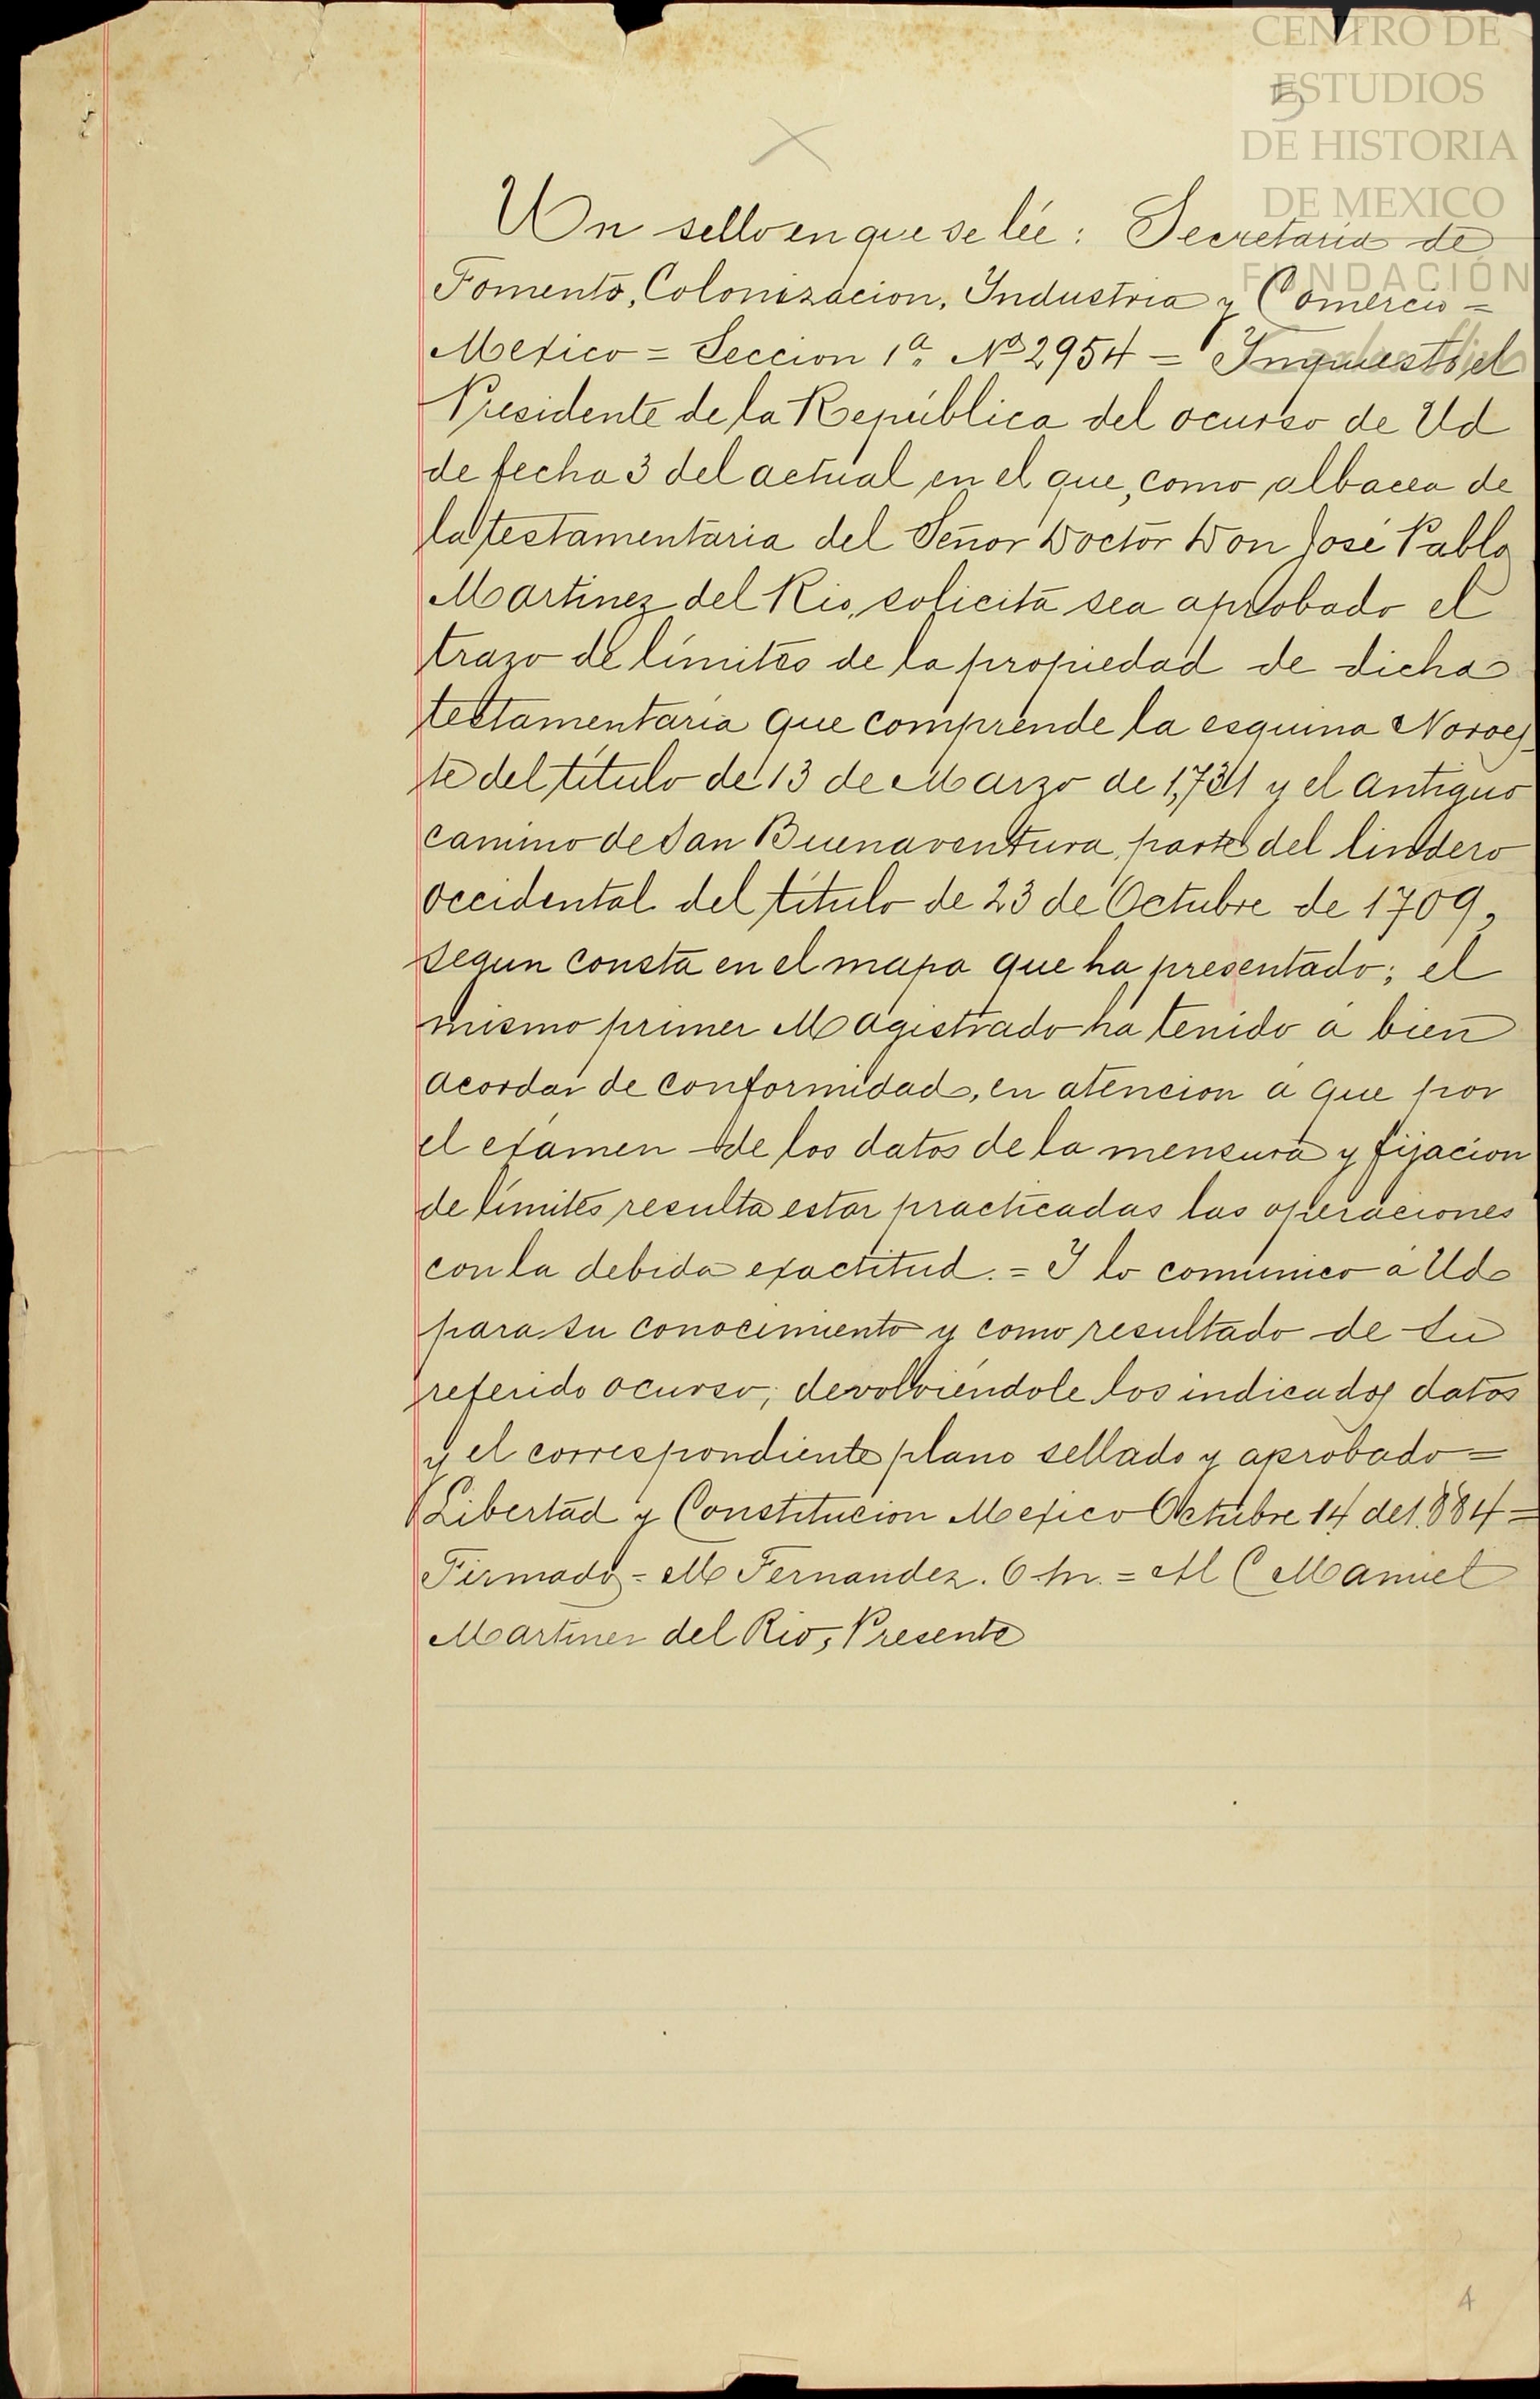 CENTRO DE
ESTUDIOS
DE HISTORIA
DE MEXICO
FUNDACIÓN
5
Un sello en que se lée: Secretaria de
Fomento, Colonizacion, Industria y Comercio =
Mexico = Seccion 1ª. Nº 2954 = Impuesto el
Presidente de la República del ocurso de Ud
de fecha 3 del actual en el que, como albacea de
la testamentaria del Señor Doctor Don José Pablo
Martinez del Rio, solicita sea aprobado el
trazo de límites de la propiedad de dicha
testamentaria que comprende la esquina Noroes-
te del título de 13 de Marzo de 1,731 y el antiguo
camino de San Buenaventura, parte del lindero
occidental del título de 23 de Octubre de 1709,
segun consta en el mapa que ha presentado; el
mismo primer Magistrado ha tenido á bien
acordar de conformidad, en atencion á que por
el exámen de los datos de la mensura y fijacion
de límites resulta estar practicadas las operaciones
con la debida exactitud. = Y lo comunico á Ud
para su conocimiento y como resultado de su
referido ocurso, devolviéndole los indicados datos
y el correspondiente plano sellado y aprobado =
Libertad y Constitucion Mexico Octubre 14 de 1.884 =
Firmado = M Fernandez. O m. = Al C Manuel
Martinez del Rio, Presente
4